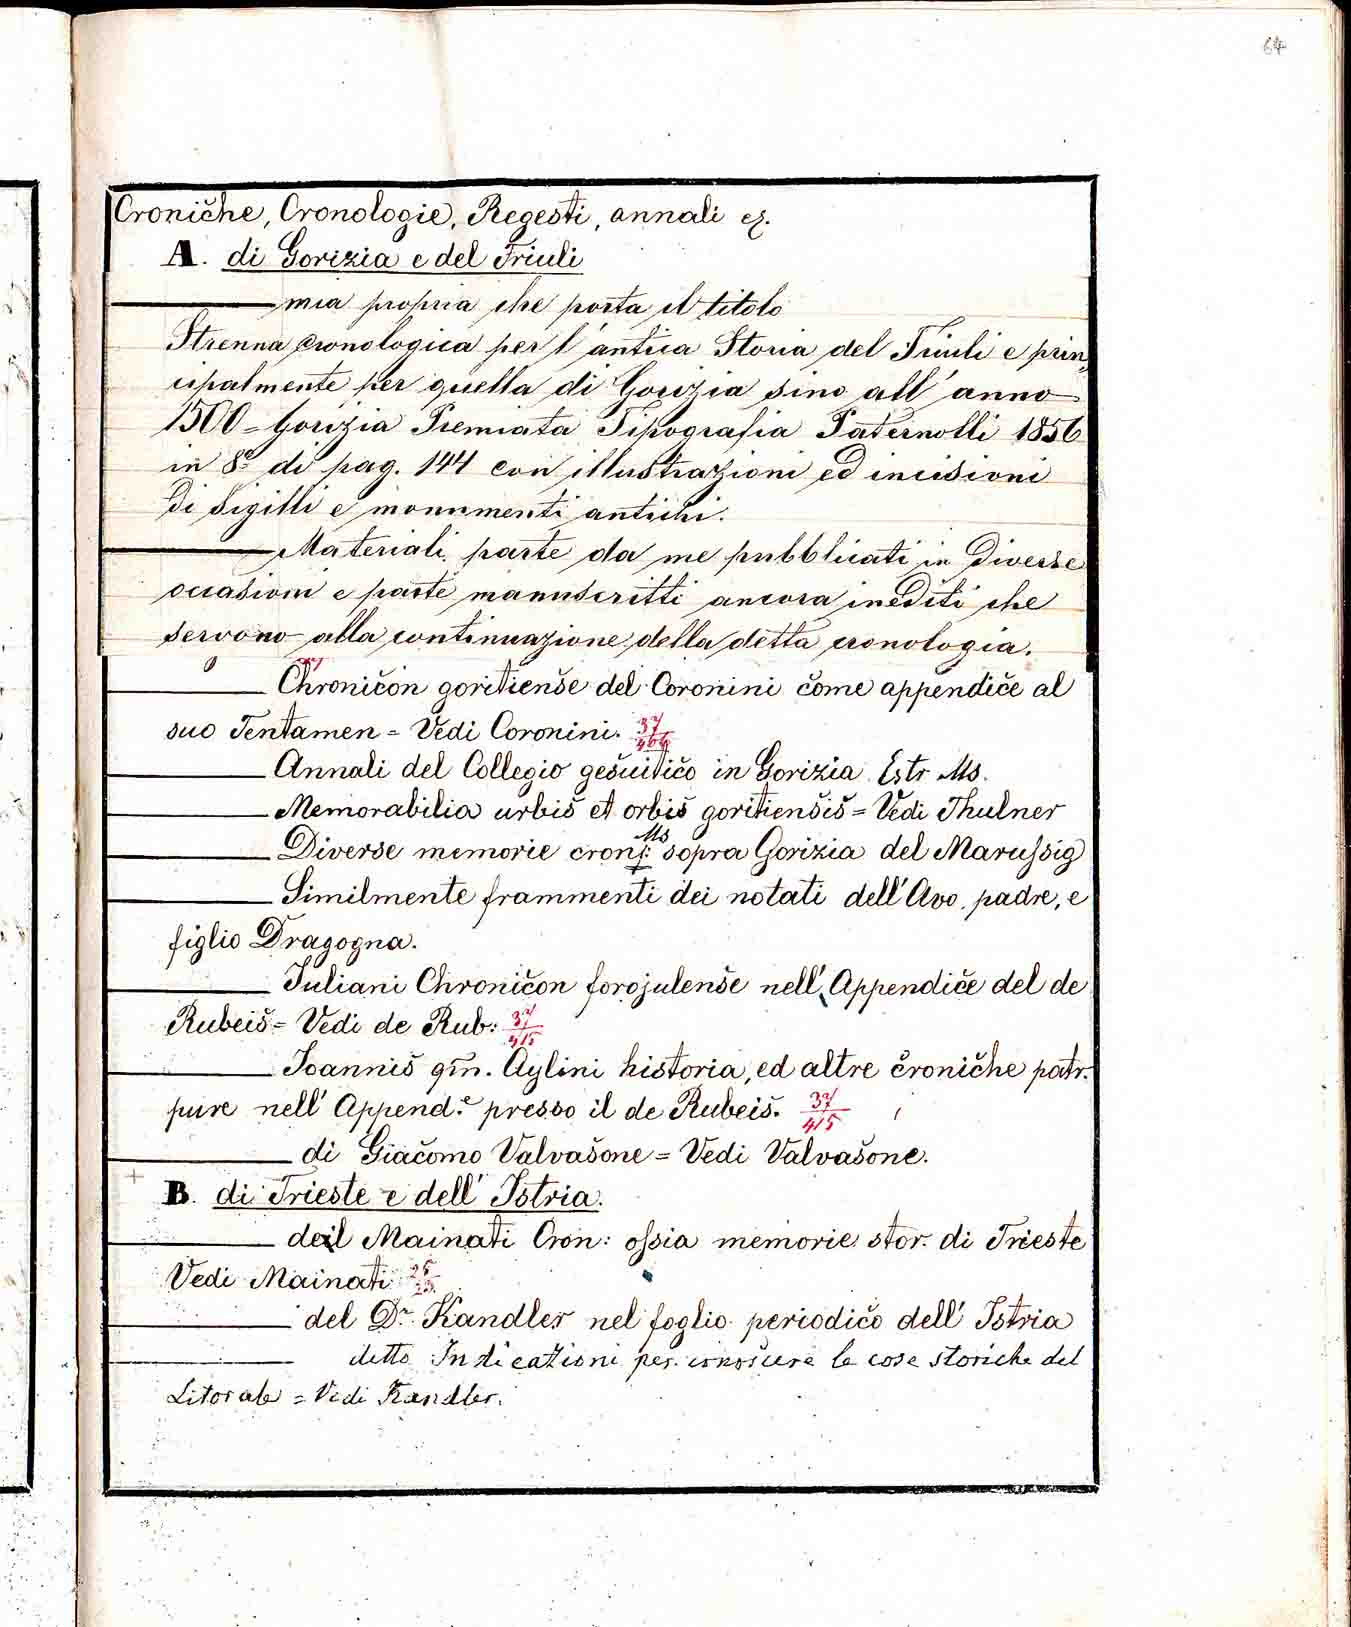 64
Croniche, Cronologie, Regesti, annali ez.
A. di Gorizia e del Friuli
mia propria che porta il titolo
Strenna cronologica per l'antica Storia del Friuli e prin,
cipalmente per quella di Gorizia sino all'anno
1500 = Gorizia Premiata Tipografia Paternolli 1856
in 8° di pag. 144 con illustrazioni ed incisioni
di sigilli e monumenti antichi.
Materiali, parte da me pubblicati in diverse
occasioni e parte manuscritti ancora inediti che
servono alla continuazione della detta cronologia.
Chronicon goritiense del Coronini come appendice al
suo Tentamen = Vedi Coronini. 37
Annali del Collegio gesuitico in Gorizia Estr Ms.
Memorabilia urbis et orbis goritiensis = Vedi Thulner
Ms
Diverse memorie cron: sopra Gorizia del Marussig
Similmente frammenti dei notati dell'Avo, padre, e
figlio Dragogna.
Iuliani Chronicon forojulense nell'Appendice del de
Rubeis = Vedi de Rub: 37/415
Ioannis qm. Aylini historia, ed altre croniche patr.
pure nell'Append.e presso il de Rubeis. 37/415
di Giacomo Valvasone = Vedi Valvasone.
B. di Trieste e dell'Istria.
del Mainati Cron: ossia memorie stor. di Trieste
Vedi Mainati
del Dr. Kandler nel foglio periodico dell'Istria
detto Indicazioni per conoscere le cose storiche del
Litorale = Vedi Kandler.